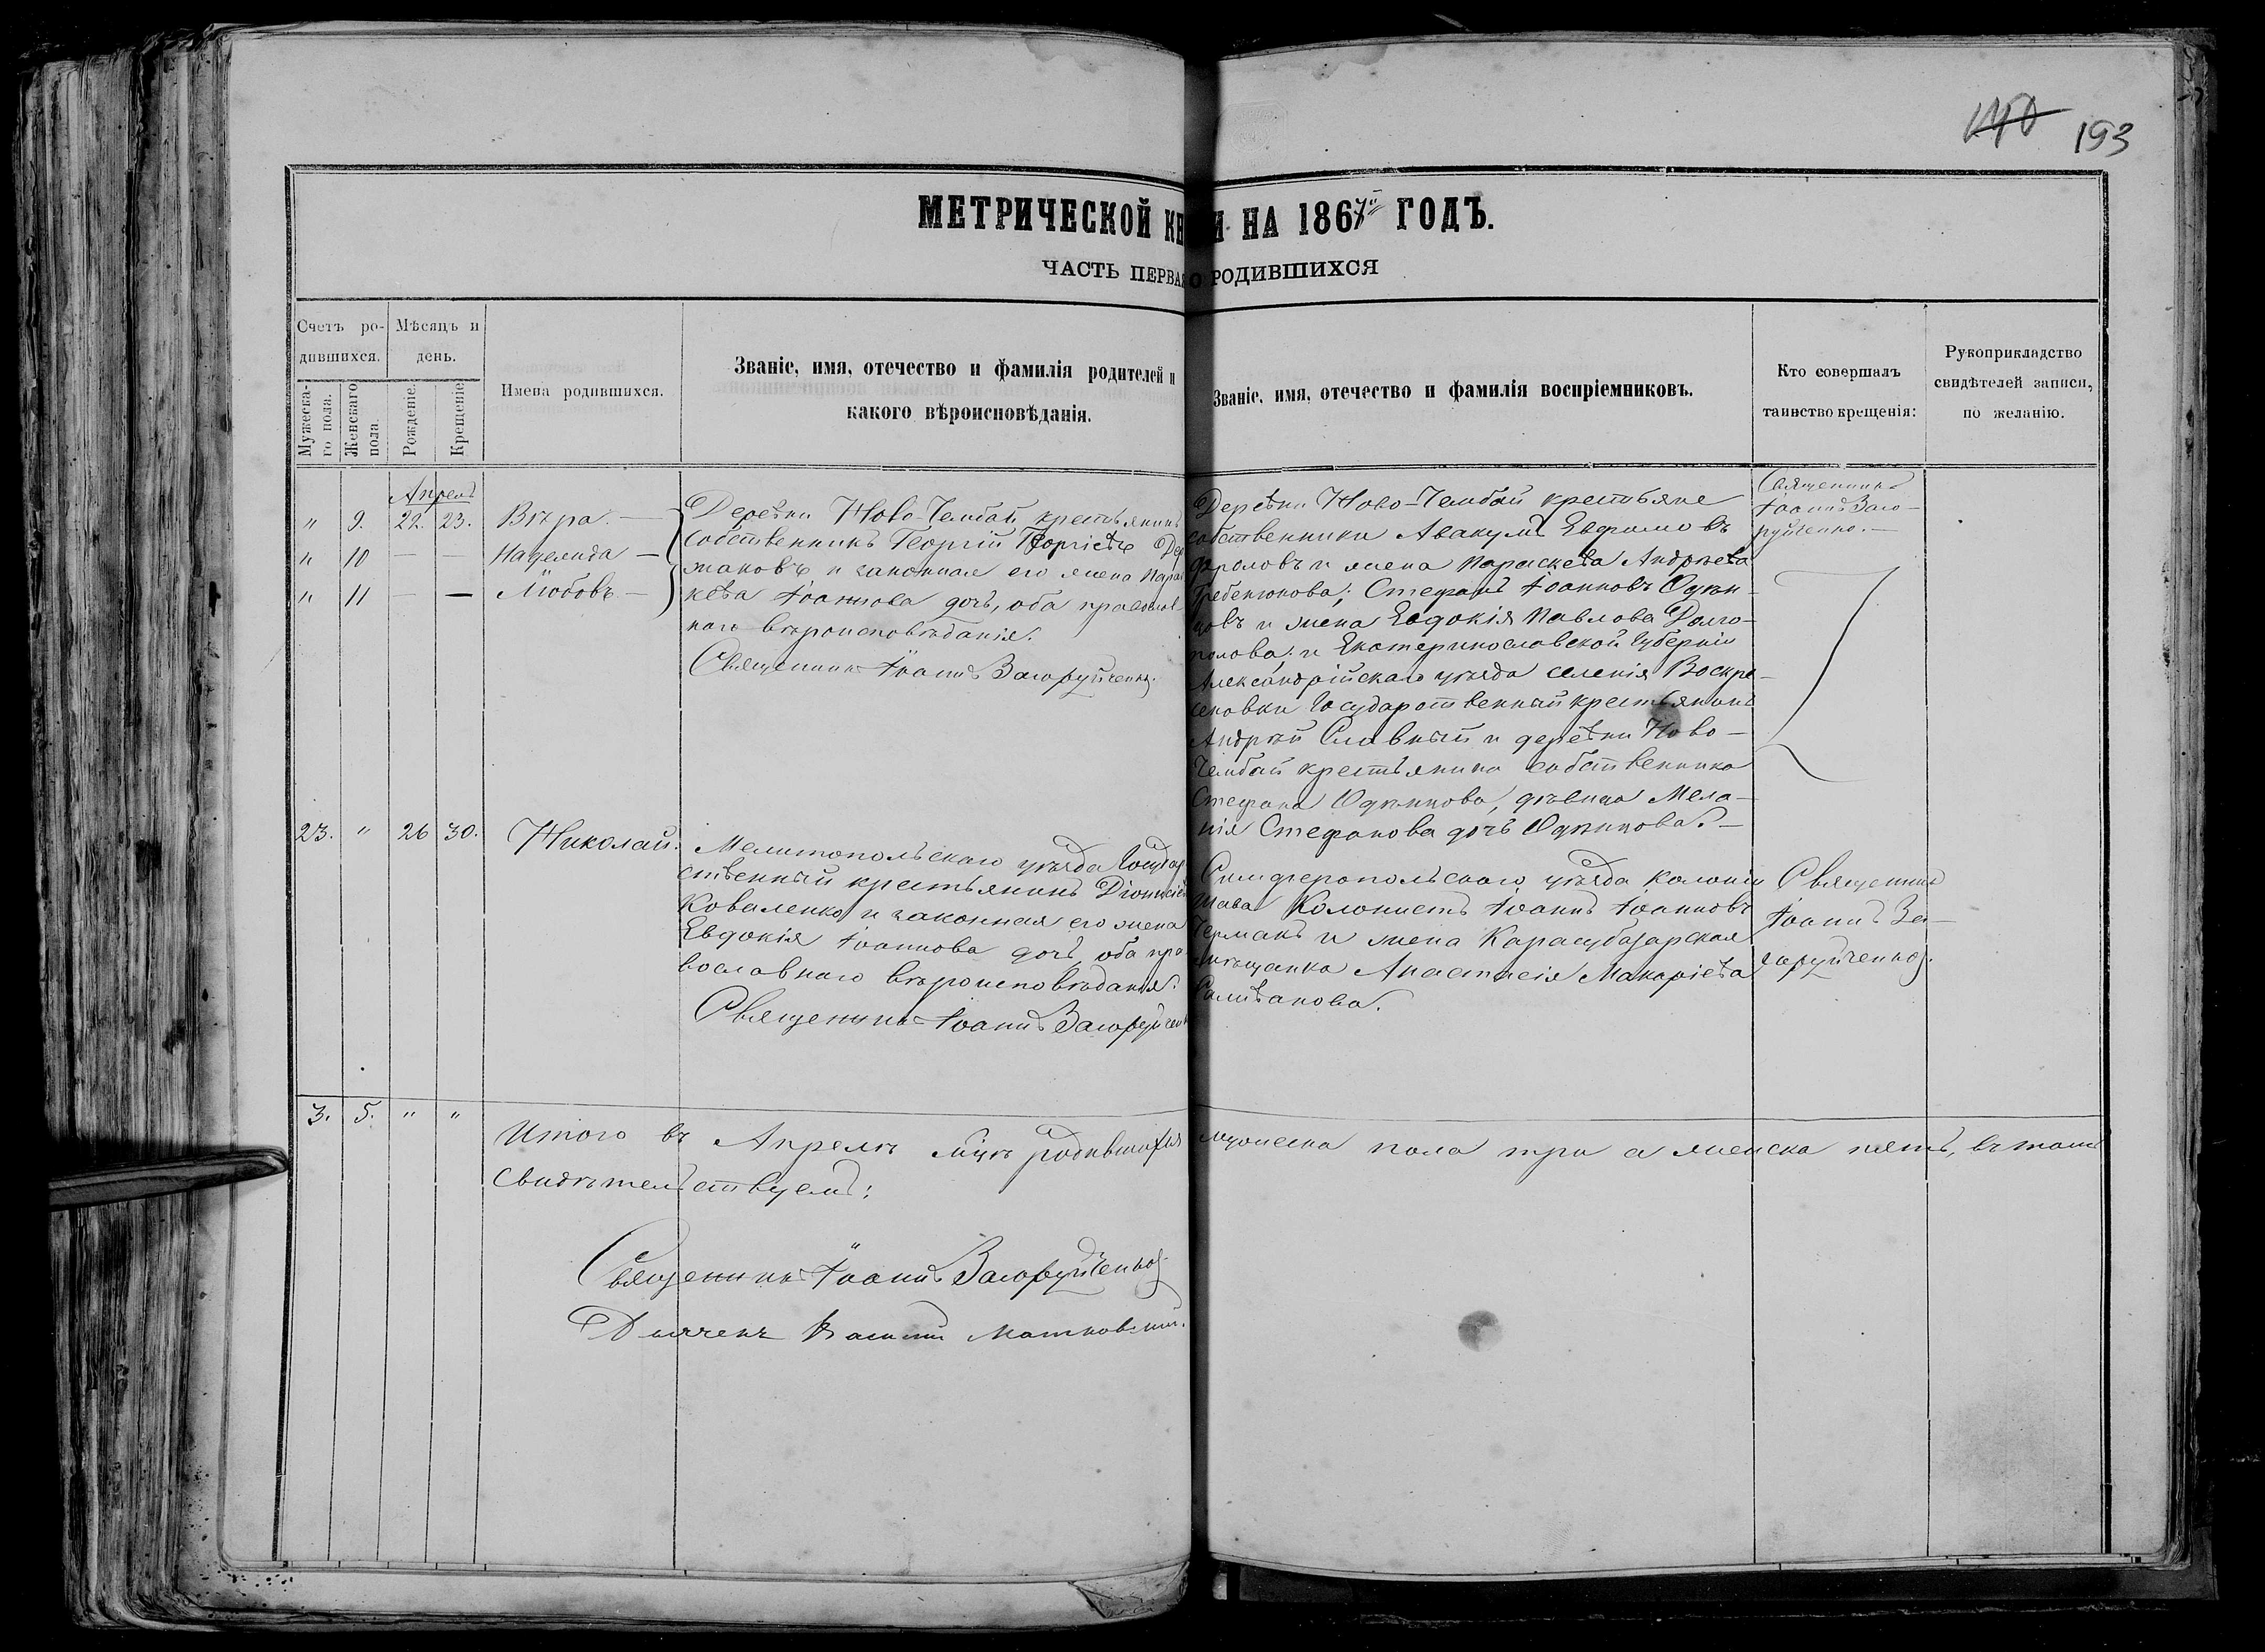 193
МЕТРИЧЕСКОЙ КН И НА 1867й ГОДЪ.
ЧАСТЬ ПЕРВАЯ О РОДИВШИХСЯ
Счетъ ро-
дившихся.
Мужеска-
го пола.
Женскаго
пола.
Мѣсяцъ и
день.
Рожденіе.
Крещеніе.
Имена родившихся.
Званіе, имя, отечество и фамилія родителей и
какого вѣроисповѣданія.
Званіе, имя, отечество и фамилія воспріемниковъ.
Кто совершалъ
таинство крещенія:
Рукоприкладство
свидѣтелей записи,
по желанію.
Апрель
" 9. 22. 23. Вѣра. —
" 10 — — Надежда —
" 11 — — Любовь —
Деревни Ново-Чембай крестьянинъ
собственникъ Георгій Георгіевъ
и законная его жена
Іоаннова дочь, оба православ-
наго вѣроисповѣданія.
Священникъ Іоаннъ Загоруйченко.
Деревни Ново-Чембай крестьяне
собственники Авакумъ Евфимовъ
и жена Параскева Андреева
Гребенюкова; Стефанъ Іоанновъ Один-
цовъ и жена Евдокія Павлова Долго-
полова; и Екатеринославской губерніи
Александрійскаго уѣзда селенія Воскре-
сеновки Государственный крестьянинъ
Андрей Славный и деревни Ново-
Чембай крестьянина собственника
Стефана Одинцова, дѣвица Мела-
нія Стефанова дочь Одинцова. —
Священникъ
Іоаннъ Заго-
руйченко. —
23. " 26 30. Николай.
Мелитопольскаго уѣзда Государ
ственный крестьянинъ Діонисій
Коваленко и законная его жена
Евдокія Іоаннова дочь, оба пра
вославнаго вѣроисповѣданія.
Священникъ Іоаннъ Загоруйченк
Симферопольскаго уѣзда колоніи
Колонистъ Іоаннъ Іоанновъ
Германъ и жена Карасубазарская
мѣщанка Анастасія Макаріева
Священникъ
Іоаннъ За-
горуйченко.
3. 5. " "
Итого въ Апрелѣ м҃цѣ родившихся мужеска пола три а женска пять, въ томъ
свидѣтельствуемъ:
Священникъ Іоаннъ Загоруйченко
Дьячекъ Василій Матковскій.